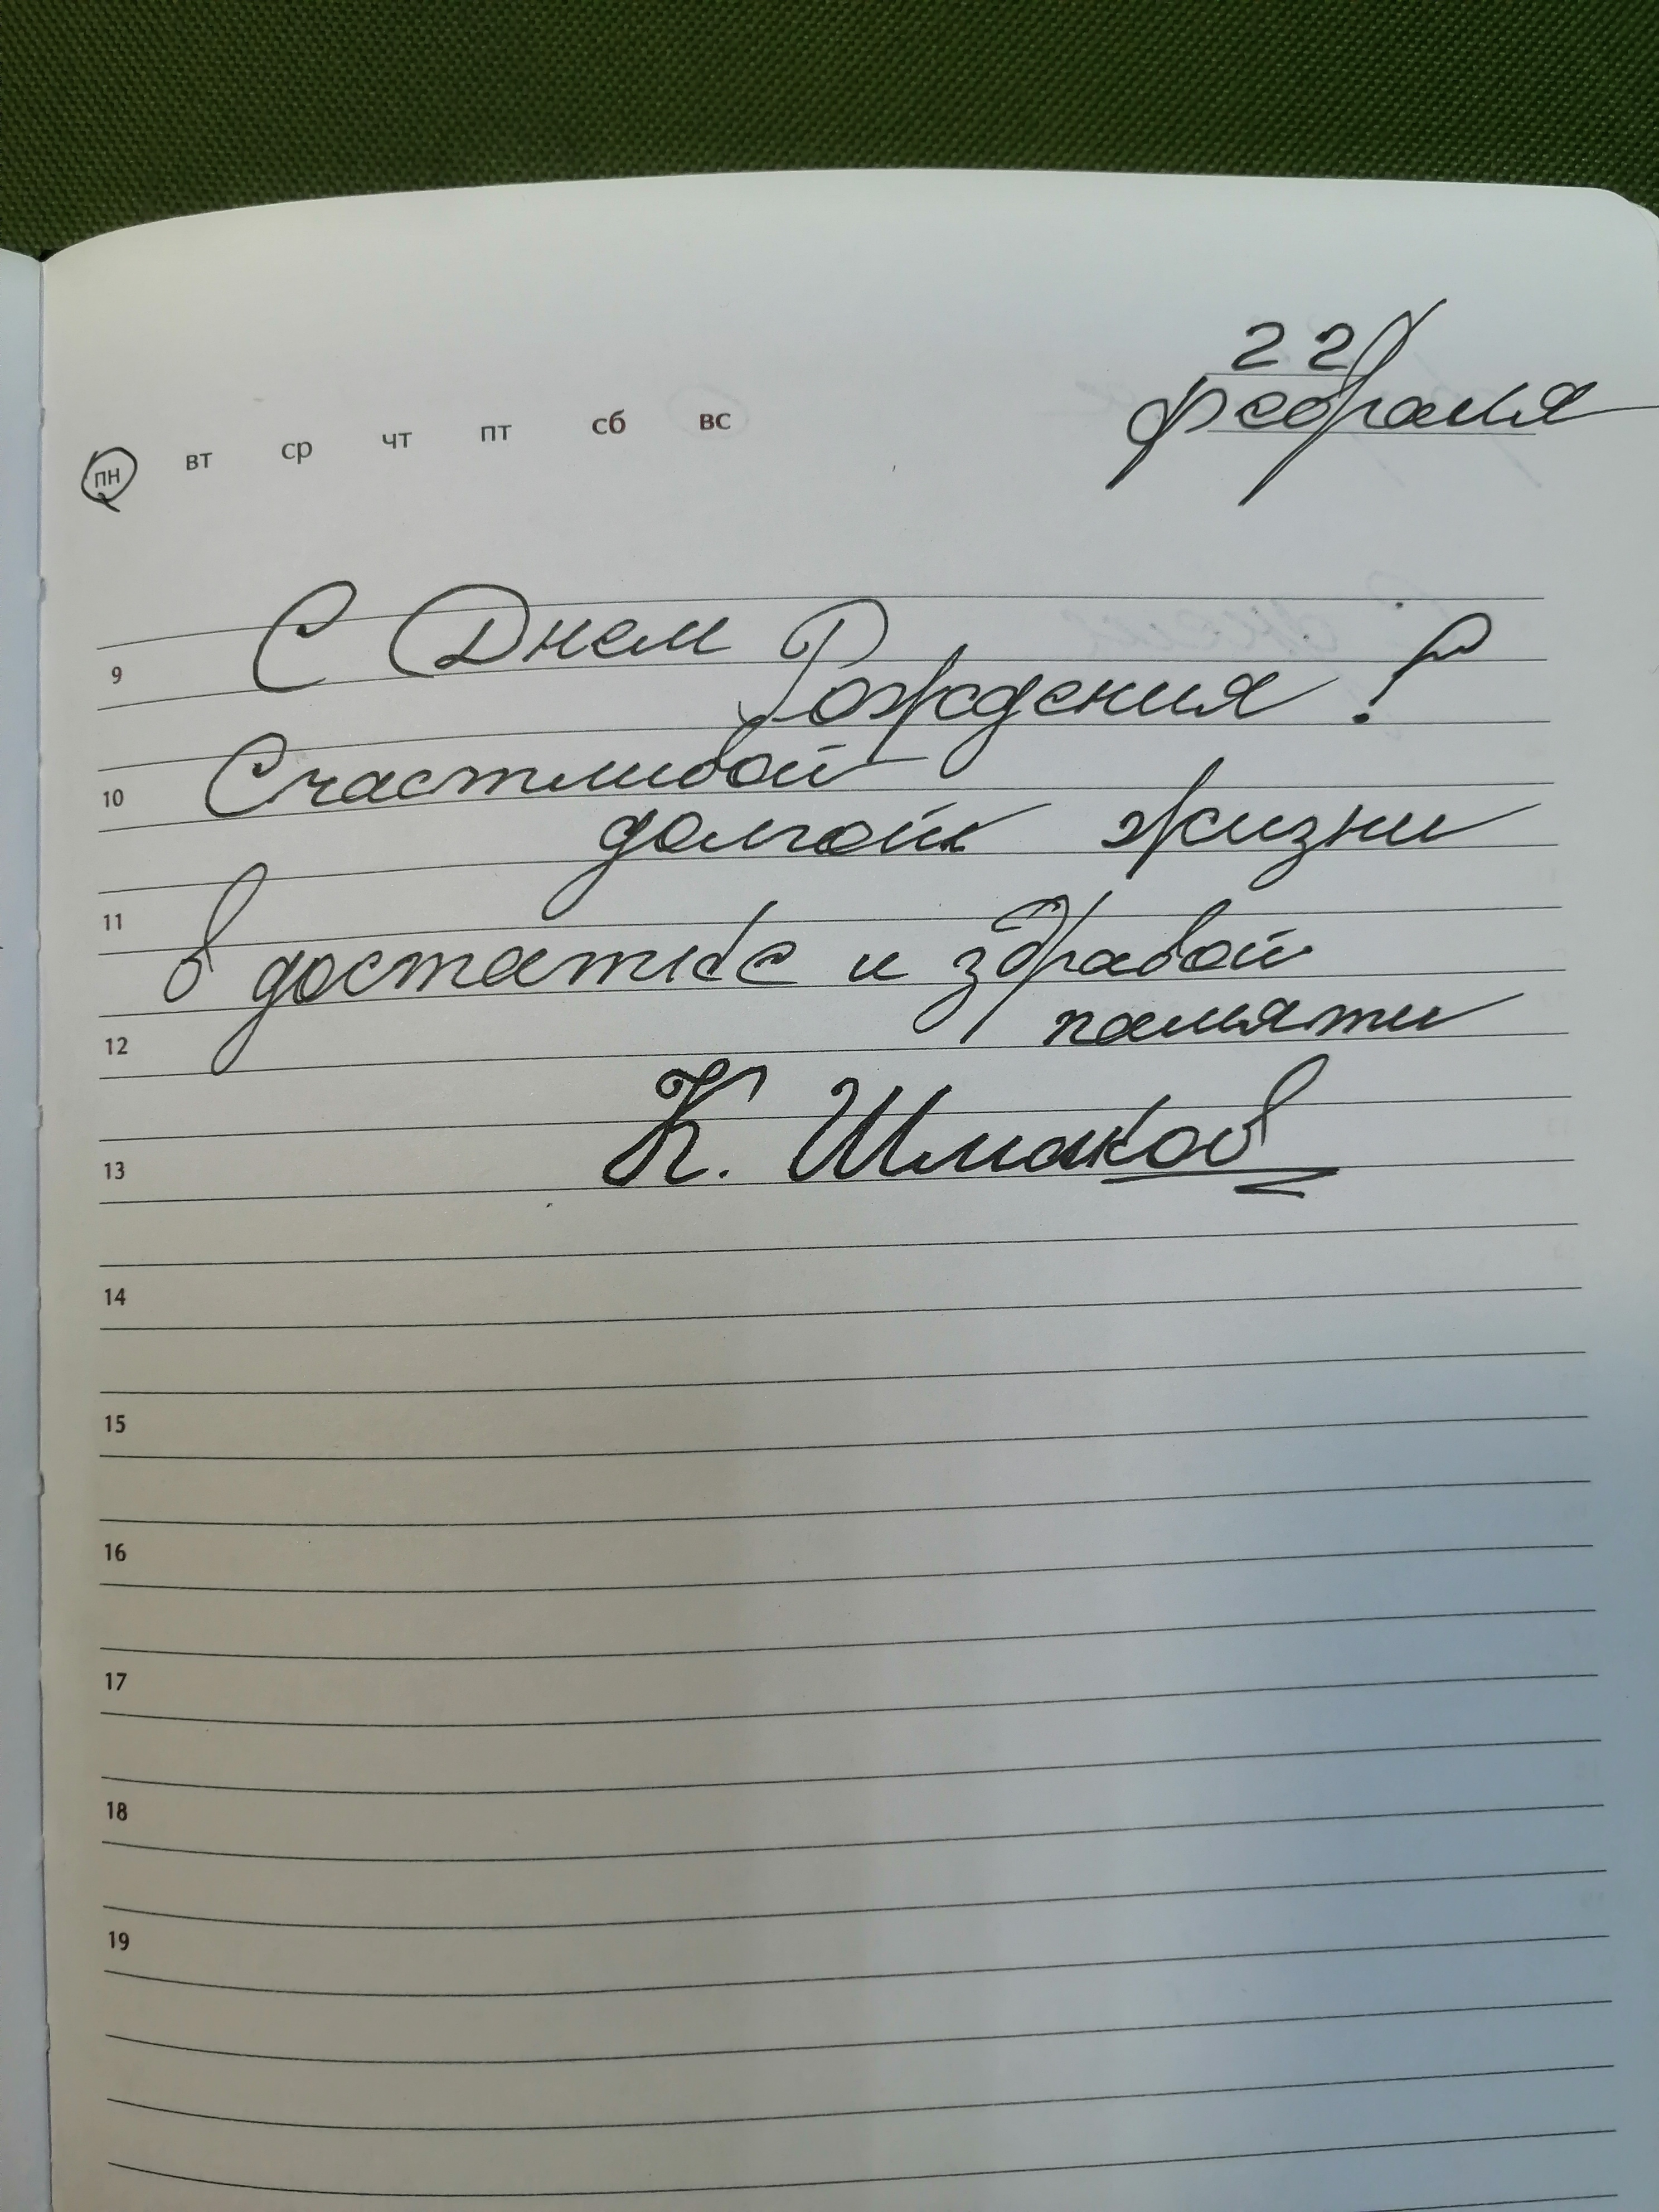 22
февраля
пн вт ср чт пт сб вс
С Днем
Рождения!
9
Счастливой
10
долгой жизни
11
в достатке и здравой
памяти
12
К. Шмаков
13
14
15
16
17
18
19